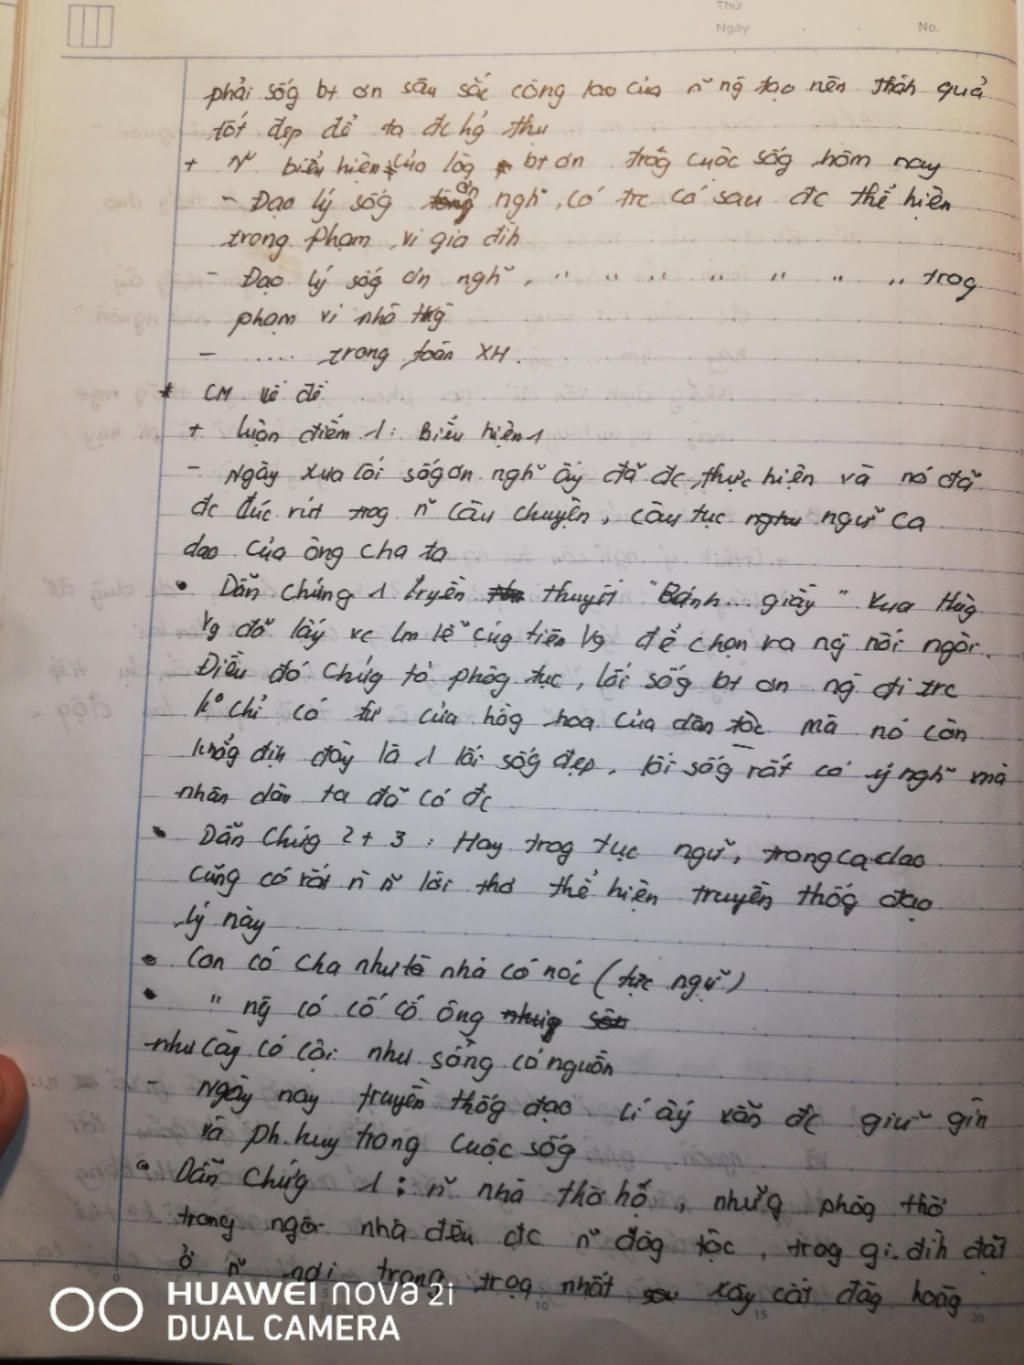 Thứ
Ngày No.
phải sốg bt ơn sâu sắc công lao của n~ ng tạo nên thành quả
tốt đẹp để ta đc hg thụ
+ N~ biểu hiện của lòg bt ơn trog cuộc sốg hôm nay
- Đạo lý sốg ơn ngh~, có trc có sau đc thể hiện
trong phạm vi gia đìh
- Đạo lý sốg ơn ngh~, " " " " " " " trog
phạm vi nhà
- .... trong toàn XH.
* CM về đề
+ luận điểm 1: Biểu hiện 1
- Ngày xưa lối sốg ơn ngh~ ấy đã đc thực hiện và nó đã
đc đúc rút trog n~ câu chuyện, câu tục ngữ ca
dao của ông cha ta
• Dẫn chứng 1 truyền thuyết "Bánh ... giầy" Vua Hùg
Vg đã lấy vc lm lễ cúg tiên Vg để chọn ra ng nối ngôi.
Điều đó chứg tỏ phog tục, lối sốg bt ơn ng đi trc
ko chỉ có từ của hồg hoa của dân tộc mà nó còn
khẳg địh đây là 1 lối sốg đẹp, lối sốg rất có ý ngh~ mà
nhân dân ta đã có đc
• Dẫn chứg 2 + 3 : Hay trog tục ngữ, trong ca dao
cũng có rất n~ lời thơ thể hiện truyền thốg đạo
lý này
• Con có cha như nhà có nóc (tục ngữ)
• " ng có cố có ông
như cây có cội như sông có nguồn
- Ngày nay truyền thốg đạo lí ấy vẫn đc giữ gìn
và ph.huy trong cuộc sốg
• Dẫn chứg 1 : n~ nhà thờ họ, nhữg phòg thờ
trong ngôi nhà đều đc n~ dòg tộc, trog gi.đìh đặt
ở n~ nơi trang trọg nhất xây cất đàg hoàg
HUAWEI nova 2i
DUAL CAMERA